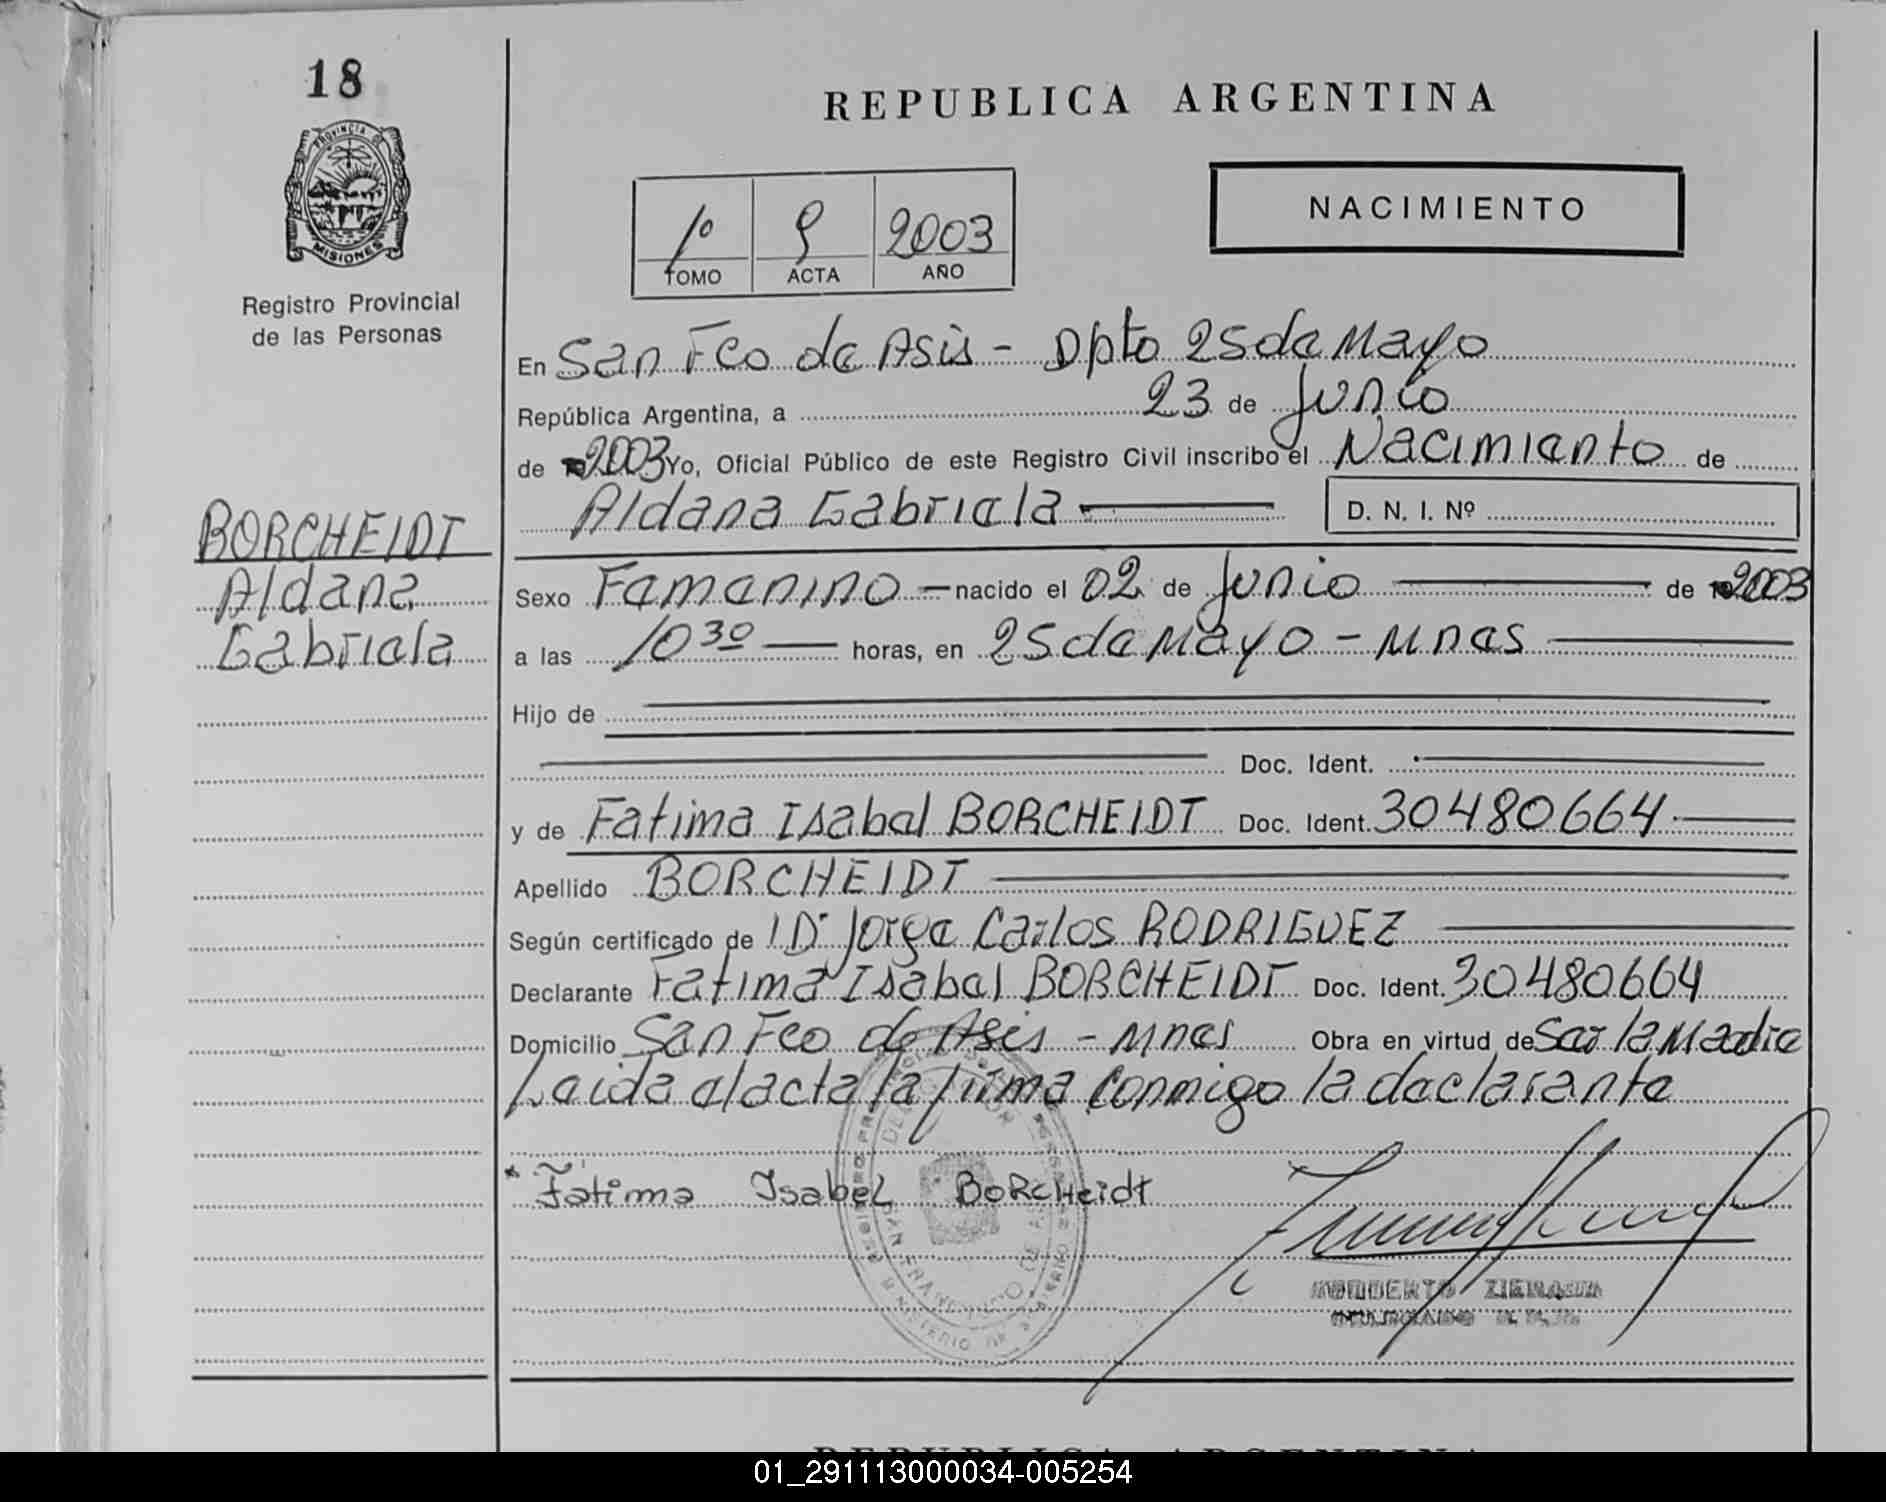 18
PROVINCIA DE
MISIONES
Registro Provincial
de las Personas
BORCHEIDT
Aldana
Gabriela
REPUBLICA ARGENTINA
1º 9 2003
TOMO ACTA AÑO
NACIMIENTO
En San Fco de Asis - Dpto 25 de Mayo
República Argentina, a 23 de Junio
de 2003 Yo, Oficial Público de este Registro Civil inscribo el Nacimiento de
Aldana Gabriela D. N. I. Nº
Sexo Femenino nacido el 02 de Junio de 2003
a las 10 30 horas, en 25 de Mayo - Mnes
Hijo de
Doc. Ident.
y de Fatima Isabel BORCHEIDT Doc. Ident. 30480664
Apellido BORCHEIDT
Según certificado de Dr Jorge Carlos RODRIGUEZ
Declarante Fatima Isabel BORCHEIDT Doc. Ident. 30480664
Domicilio San Fco de Asis - Mnes Obra en virtud de Ser la Madre
Leida el acta la firma conmigo la declarante
Fatima Isabel BoRcHeidt
REPUBLICA ARGENTINA
01_291113000034-005254